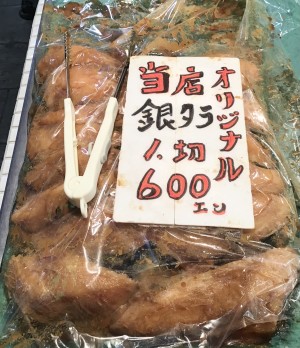 当店
オリジナル
銀タラ
1切
600
エン